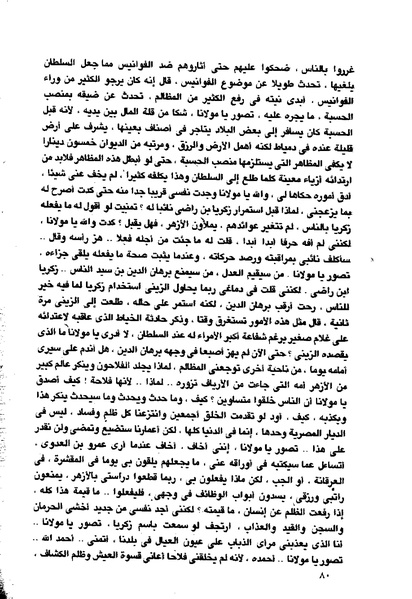 غرروا بالناس ، ضحكوا عليهم حتى أثاروهم ضد الفوانيس مما جعل السلطان
يلغيها ، تحدث طويلا عن موضوع الفوانيس . قال إنه كان يرجو الكثير من وراء
الفوانيس . أبدى نيته فى رفع الكثير من المظالم . تحدث عن ضيقه بمنصب
الحسبة ، ما يجره عليه . تصور يا مولانا ، شكا من قلة المال بين يديه ، لأنه قبل
الحسبة كان يسافر إلى بعض البلاد يتاجر فى أصناف بعينها ، يشرف على أرض
قليلة عنده فى دمياط لكنه أهمل الأرض والرزق ، ومرتبه من الديوان خمسون دينارا
لا يكفى المظاهر التى يستلزمها منصب الحسبة ، حتى لو أبطل هذه المظاهر فلابد من
ارتدائه أزياء معينة كلما طلع إلى السلطان وهذا يكلفه كثيرا ، لم يخف عنى شيئا ،
أدق أموره حكاها لى ، والله يا مولانا وجدت نفسى قريبا جدا منه حتى كدت أصرح له
بما يزعجنى . لماذا قبل استمرار زكريا بن راضى نائبا له ؟ تمنيت لو أقول له ما يفعله
زكريا بالناس ، لم تتغير عوائدهم ، يملأون الأزهر ، فهل يقبل ؟ كدت والله يا مولانا ،
لكننى لم أفه حرفا أبدا أبدا . قلت له ما جئت من أجله فعلا .. هز رأسه وقال ..
سأكلف نائبى بمراقبته ورصد حركاته ، وعندما يثبت صحة ما يفعله يلقى جزاءه .
تصور يا مولانا .. من سيقيم العدل ، من سيمنع برهان الدين بن سيد الناس .. زكريا
ابن راضى . لكننى قلت فى دماغى ربما يحاول الزينى استخدام زكريا لما فيه خير
للناس ، رحت أرقب برهان الدين ، لكنه استمر على حاله ، طلعت إلى الزينى مرة
ثانية ، قال مثل هذه الأمور تستغرق وقتا ، وذكر حادثة الخياط الذى عاقبه لاعتدائه
على غلام صغير برغم شفاعة أكبر الأمراء له عند السلطان ، لا أدرى يا مولانا ما الذى
يقصده الزينى ؟ حتى الآن لم يهز أصبعا فى وجه برهان الدين ، هل أندم على سيرى
أمامه يوما . من ناحية أخرى توجعنى المظالم ، لماذا يجلد الفلاحون وينكر عالم كبير
من الأزهر أمه التى جاءت من الأرياف تزوره .. لماذا .. لأنها فلاحة ؟ كيف أصدق
يا مولانا أن الناس خلقوا متساوين ؟ كيف ، وما حدث ويحدث وما سيحدث ينكر هذا
ويكذبه ، كيف . أود لو تقدمت الخلق أجمعين وانتزعنا كل ظلم وفساد ، ليس فى
الديار المصرية وحدها ، إنما فى الدنيا كلها ، لكن أعمارنا ستضيع وتمضى ولن نقدر
على هذا .. تصور يا مولانا ، إننى أخاف ، أخاف عندما أرى عمرو بن العدوى ،
أتساءل عما سيكتبه فى أوراقه عنى ، ما يجعلهم يلقون بى يوما فى المقشرة ، فى
العرقانة ، أو الجب ، لكن ماذا يفعلون بى ، ربما قطعوا دراستى بالأزهر ، يمنعون
راتبى ورزقى ، يسدون أبواب الوظائف فى وجهى ، فليفعلوا .. ما قيمة هذا كله ،
إذا رفعت الظلم عن إنسان ، ما قيمته ؟ لكننى أجد نفسى من جديد أخشى الحرمان
والسجن والقيد والعذاب ، أرتجف لو سمعت باسم زكريا ، تصور يا مولانا ..
أنا الذى يعذبنى مرأى الذباب على عيون العيال فى بلدنا ، أتمنى .. أحمد الله ..
تصور يا مولانا .. أحمده ، لأنه لم يخلقنى فلاحا أعانى قسوة العيش وظلم الكشاف ،
٨٠